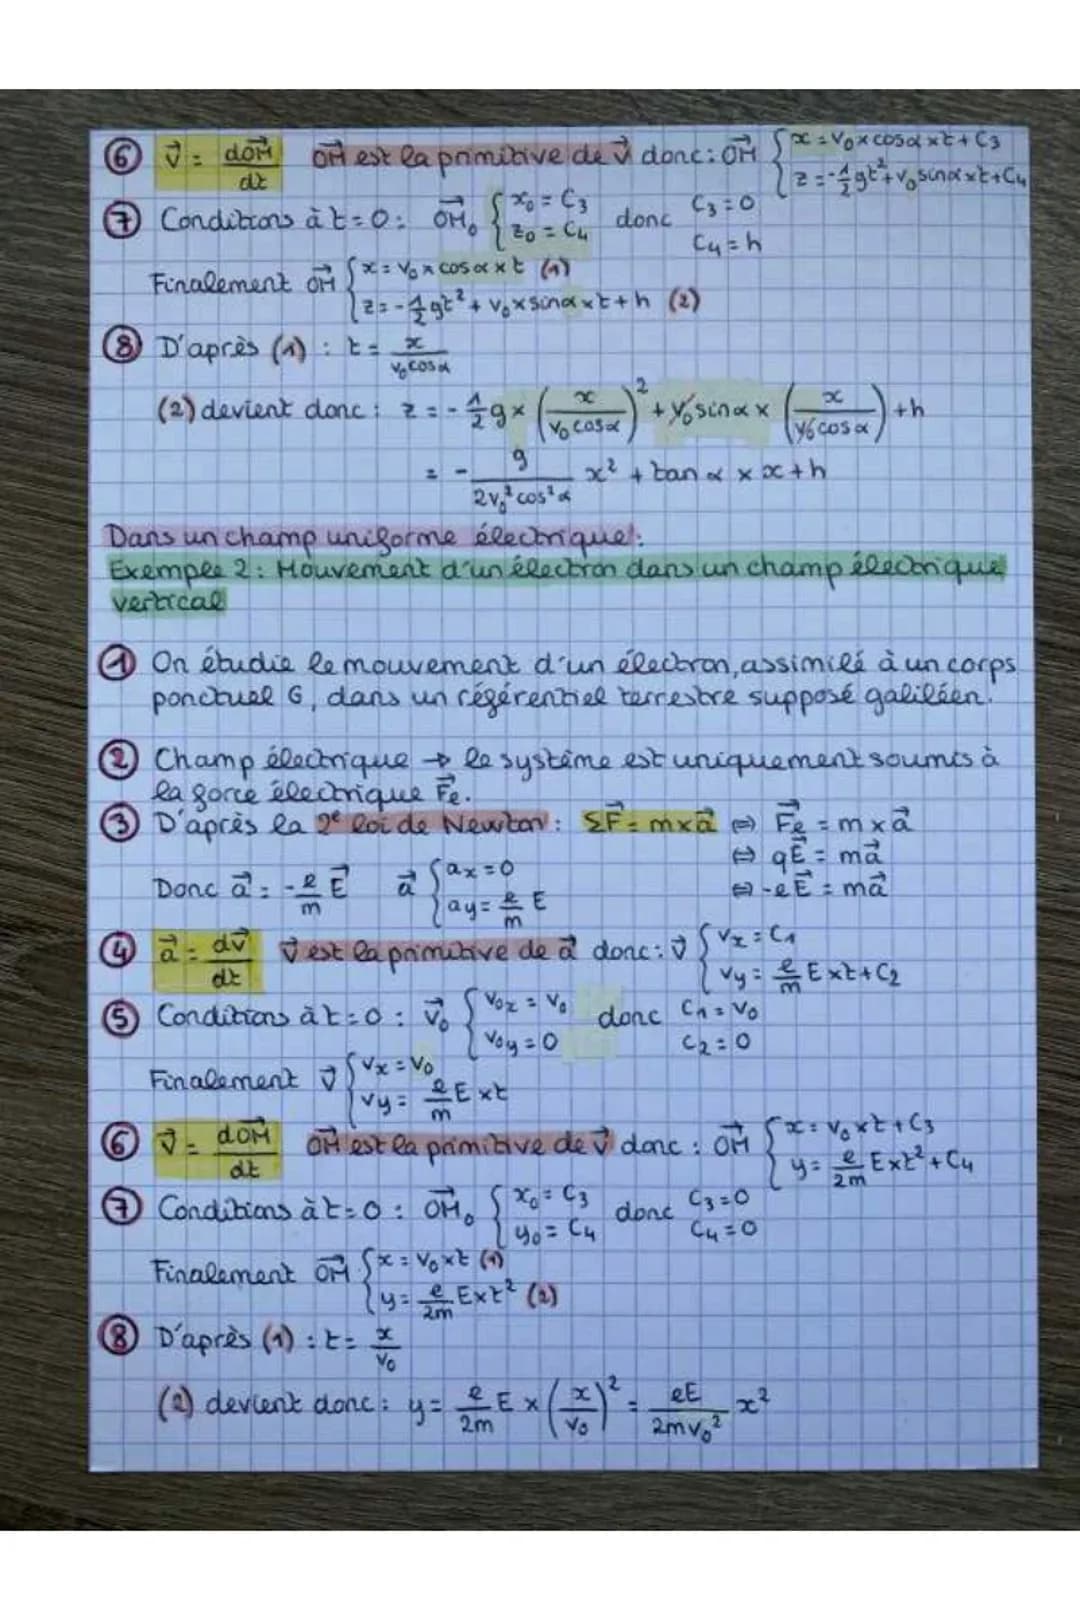 ⑥ v⃗ = dOM⃗/dt OM⃗ est la primitive de v⃗ donc : OM⃗ { x = v₀ × cosα × t + C₃
z = -1/2 gt² + v₀ sinα × t + C₄
⑦ Conditions à t = 0 : OM⃗₀ { x₀ = C₃ donc C₃ = 0
z₀ = C₄ C₄ = h
Finalement OM⃗ { x = v₀ × cosα × t (1)
z = -1/2 gt² + v₀ × sinα × t + h (2)
⑧ D'après (1) : t = x/(v₀ cosα)
(2) devient donc : z = -1/2 g × (x/(v₀ cosα))² + v₀ sinα × (x/(v₀ cosα)) + h
= - g/(2v₀² cos²α) x² + tanα × x + h
Dans un champ uniforme électrique :
Exemple 2 : Mouvement d'un électron dans un champ électrique
vertical
① On étudie le mouvement d'un électron, assimilé à un corps
ponctuel G, dans un référentiel terrestre supposé galiléen.
② Champ électrique → le système est uniquement soumis à
la force électrique F⃗e.
③ D'après la 2ᵉ loi de Newton : ΣF⃗ = m × a⃗ ⇔ F⃗e = m × a⃗
⇔ qE⃗ = ma⃗
Donc a⃗ = -e/m E⃗ a⃗ { ax = 0 ⇔ -eE⃗ = ma⃗
ay = e/m E
④ a⃗ = dv⃗/dt v⃗ est la primitive de a⃗ donc : v⃗ { vx = C₁
vy = e/m E × t + C₂
⑤ Conditions à t = 0 : v⃗₀ { v₀x = v₀ donc C₁ = v₀
v₀y = 0 C₂ = 0
Finalement v⃗ { vx = v₀
vy = e/m E × t
⑥ v⃗ = dOM⃗/dt OM⃗ est la primitive de v⃗ donc : OM⃗ { x = v₀ × t + C₃
y = e/2m E × t² + C₄
⑦ Conditions à t = 0 : OM⃗₀ { x₀ = C₃ donc C₃ = 0
y₀ = C₄ C₄ = 0
Finalement OM⃗ { x = v₀ × t (1)
y = e/2m E × t² (2)
⑧ D'après (1) : t = x/v₀
(2) devient donc : y = e/2m E × (x/v₀)² = eE/(2mv₀²) x²